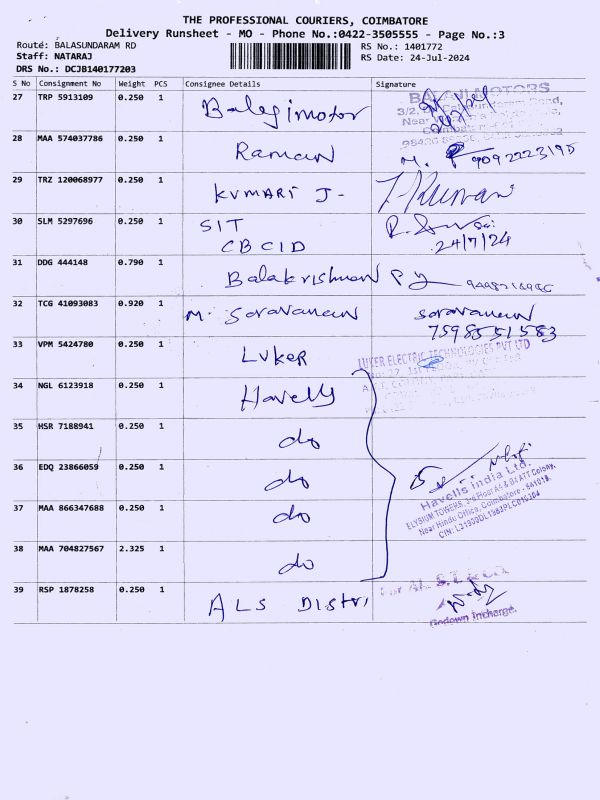 THE PROFESSIONAL COURIERS, COIMBATORE
Delivery Runsheet - MO - Phone No.:0422-3505555 - Page No.:3
Route: BALASUNDARAM RD
RS No.: 1401772
Staff: NATARAJ
RS Date: 24-Jul-2024
DRS No.: DCJB140177203
S No Consignment No Weight PCS Consignee Details Signature
27 TRP 5913109 0.250 1 Balegimotor
28 MAA 574037786 0.250 1 Raman
29 TRZ 120068977 0.250 1 KUMARI J-
30 SLM 5297696 0.250 1 SIT
CBCID
24/7/24
31 DDG 444148 0.790 1 Balakrishnan P
32 TCG 41093083 0.920 1 M. Saravanan Saravanan
7598551583
33 VPM 5424780 0.250 1 LUKER
LUKER ELECTRIC TECHNOLOGIES PVT LTD
34 NGL 6123918 0.250 1 Havells
35 HSR 7188941 0.250 1 do
36 EDQ 23866059 0.250 1 do
37 MAA 866347688 0.250 1 do
Havells India Ltd.
ELYSIUM TOWERS, 3rd Floor A4 & B4 ATT Colony,
Near Hindu Office, Coimbatore - 641018.
38 MAA 704827567 2.325 1 do
39 RSP 1878258 0.250 1 ALS Distri
Godown Incharge.